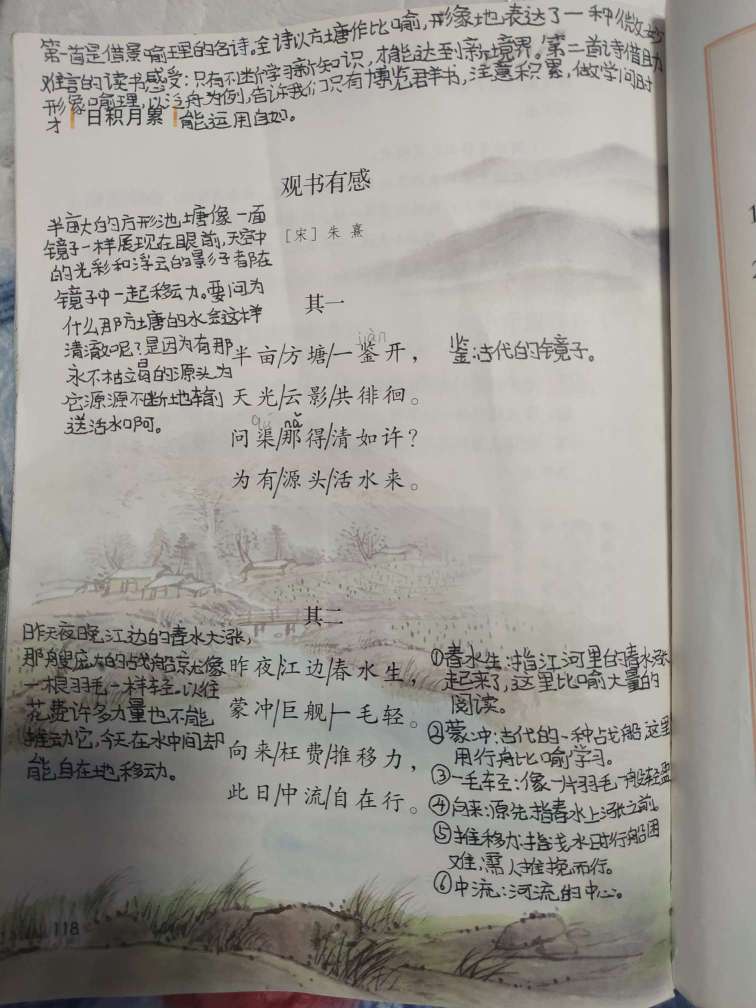 第一首是借景喻理的名诗。全诗以方塘作比喻,形象地表达了一种微妙
难言的读书感受:只有不断学习新知识,才能达到新境界。第二首诗借助
形象喻理,以泛舟为例,告诉我们只有博览群书,注意积累,做学问时
才能运用自如。
日积月累
观书有感
[宋]朱熹
半亩大的方形池塘像一面
镜子一样展现在眼前,天空中
的光彩和浮云的影子都在
镜子中一起移动。要问为
什么那方塘的水会这样
清澈呢?是因为有那
永不枯竭的源头为
它源源不断地输
送活水啊。
其一
jiàn
半亩/方塘/一鉴开,
天光/云影/共徘徊。
qú nǎ
问渠/那得/清如许?
为有/源头/活水来。
鉴:古代的镜子。
其二
昨天夜晚江边的春水大涨,
那艘庞大的战船就像
一根羽毛一样轻。以往
花费许多力量也不能
推动它,今天在水中间却
能自在地移动。
昨夜/江边/春水生,
蒙冲/巨舰/一毛轻。
向来/枉费/推移力,
此日/中流/自在行。
①春水生:指江河里的春水涨
起来了,这里比喻大量的
阅读。
②蒙冲:古代的一种战船,这里
用行舟比喻学习。
③一毛轻:像一片羽毛一般轻盈
④向来:原先,指春水上涨之前。
⑤推移力:指浅水时行船困
难,需人推挽而行。
⑥中流:河流的中心。
118